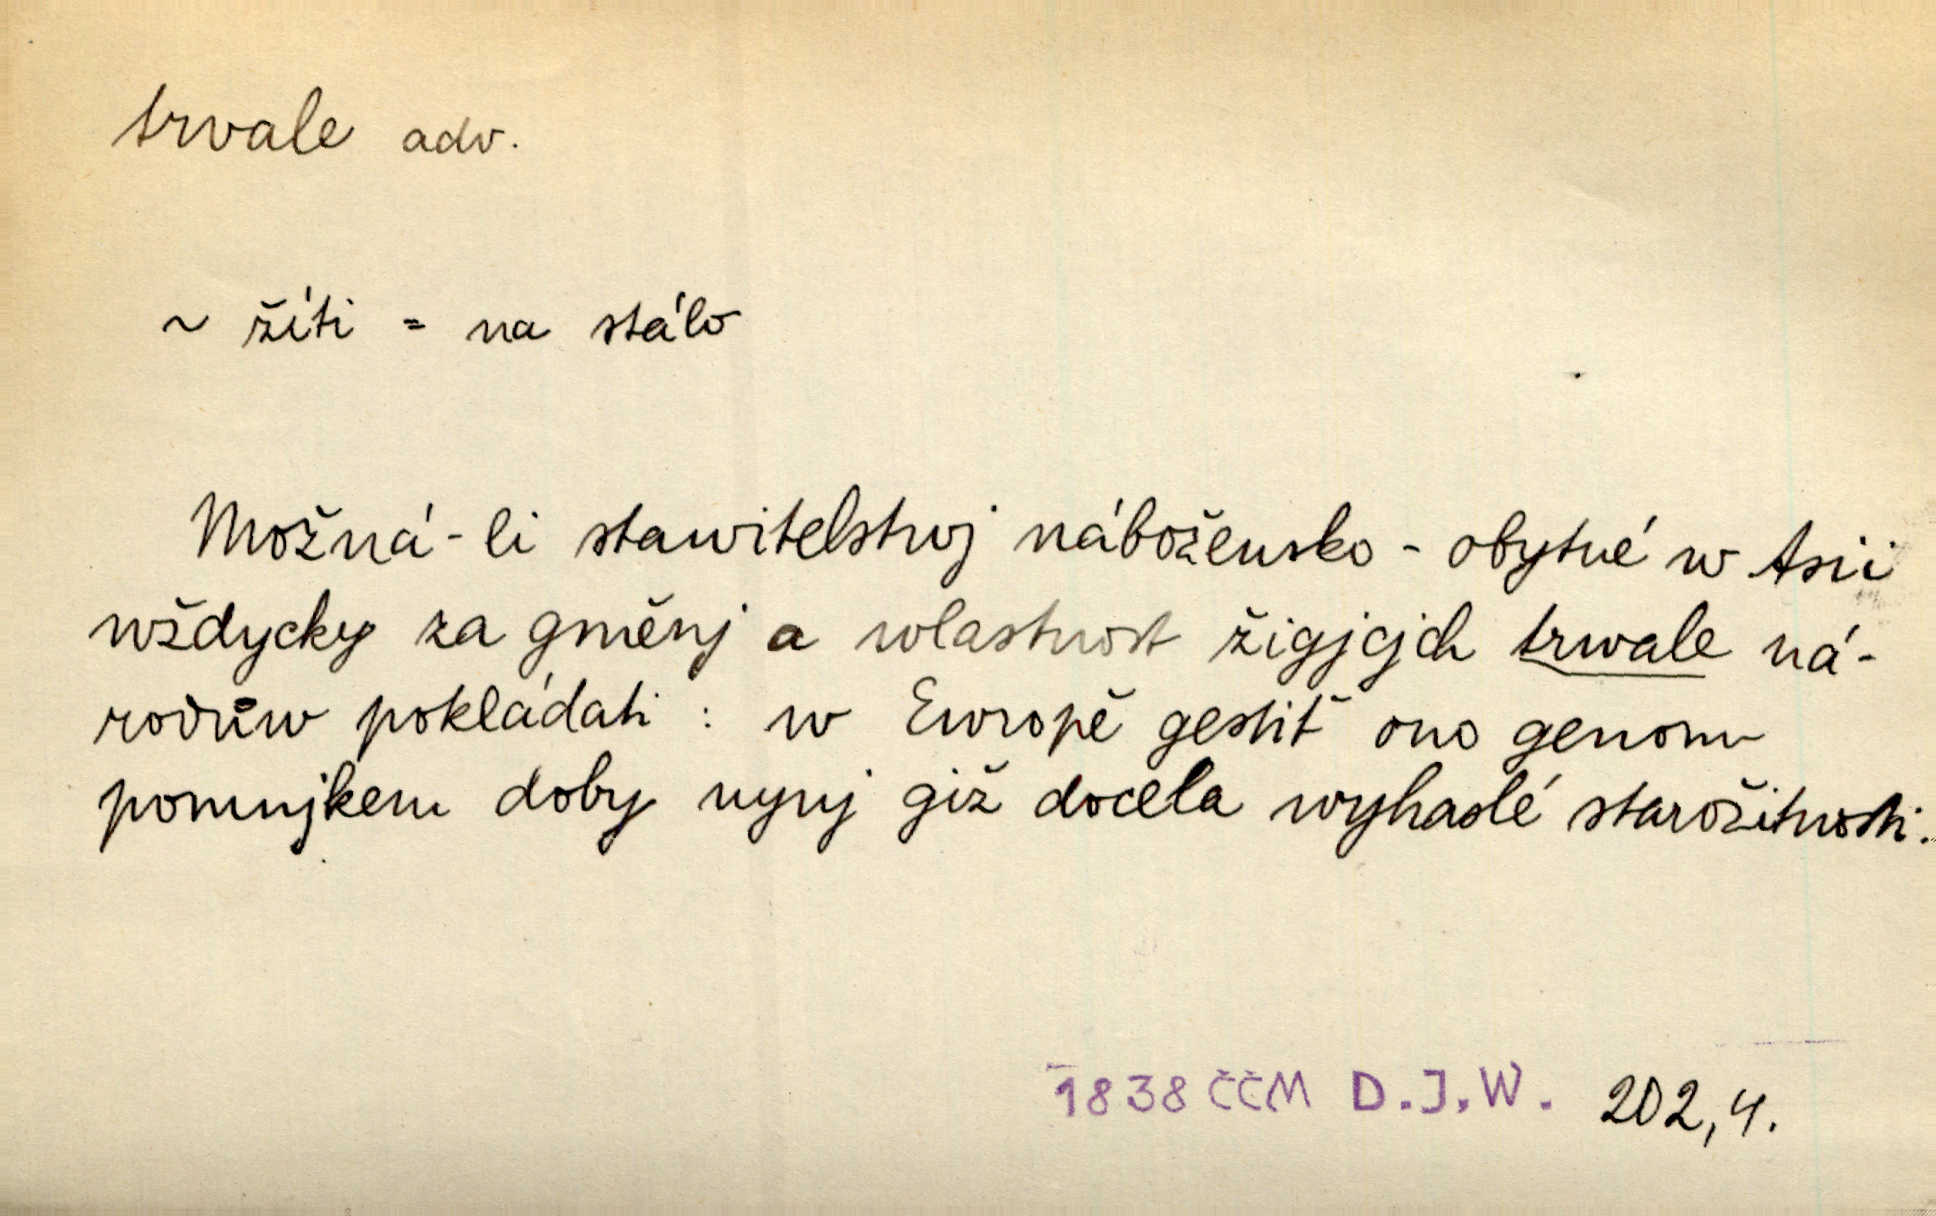 trvale adv.
~ žíti = na stálo
Možná-li stawitelstwj nábožensko - obytné w Asii
wždycky za gměnj a wlastnost žigjcjch trwale ná-
rodůw pokládati : w Ewropě gestiť ono genom
pomnjkem doby nynj giž docela wyhaslé starožitnosti.
1838 ČČM D.J.W. 202,4.